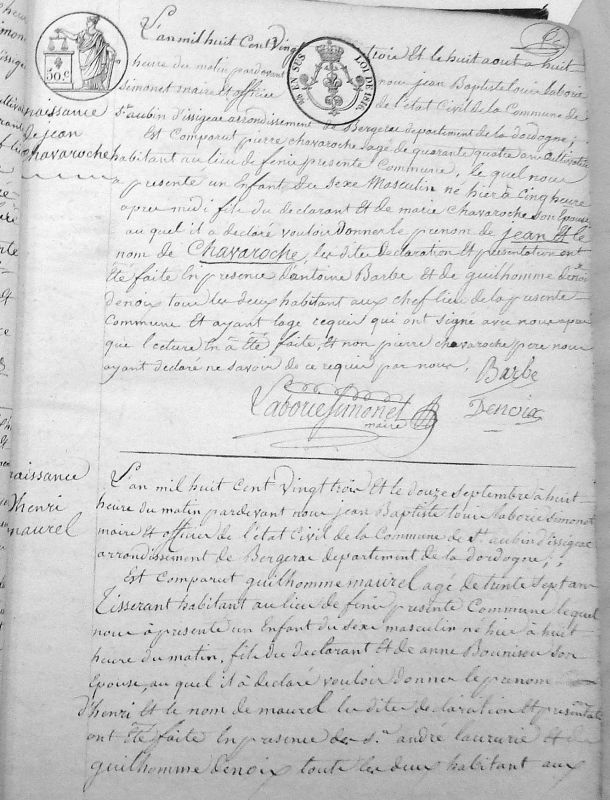 L'an mil huit Cent Vingt trois Et le huit aout à huit
heure du matin pardevant nous jean Baptiste louis laborie
simonet maire et officier de l'état Civil de la Commune de
st aubin d'issigeac arrondissement de Bergerac departement de la dordogne;
naissance
de jean
chavaroche
Est Comparut pierre chavaroche agé de quarante quatre ans Cultivateur
habitant au lieu de fenix presente Commune, le quel nous
a presente un Enfant du sexe Masculin né hier à Cinq heure
apres midi fils du declarant et de marie Chavaroche son Epouse
au quel il a declaré vouloir donner le prenom de jean Et le
nom de Chavaroche, les dite declaration et presentation ont
Eté faite En presence d'antoine Barbe Et de guilhomme denoix
Denoix tous les deux habitant aux chef lieu de la presente
Commune Et ayant lage requis qui ont signé avec nous apres
que lecture En a Eté faite, et non pierre chavaroche pere nous
ayant declaré ne savoir de ce requis par nous.
Barbe
Laborie Simonet
maire
Denoix
50 c
LOI DE 1816
naissance
d'henri
maurel
L'an mil huit Cent Vingt trois Et le douze septembre à huit
heure du matin pardevant nous jean Baptiste louis laborie simonet
maire et officier de l'état Civil de la Commune de st aubin d'issigeac
arrondissement de Bergerac departement de la dordogne;
Est comparut guilhomme maurel agé de trente sept ans
Tisserant habitant au lieu de fenix presente Commune lequel
nous à presente un Enfant du sexe masculin né hier à huit
heure du matin, fils du declarant Et de anne Bounisou son
Epouse, au quel il à declaré vouloir donner le prenom
d'henri et le nom de maurel les dite declaration et presentation
ont Eté faite En presence de sr andré laururie et de
guilhomme denoix toute les deux habitant aux